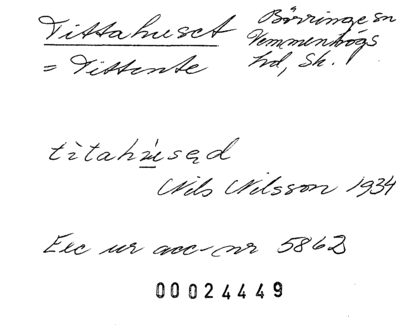 Tittahuset
Börringe sn
Vemmenhögs
hd, Sk.
= Tittente
titahúsəd
Nils Nilsson 1934
Exc ur acc-nr 5862
00024449